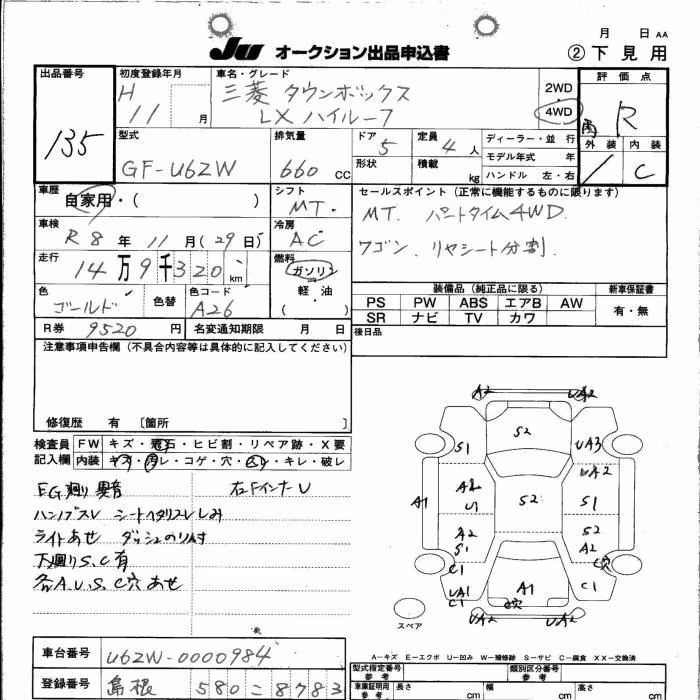 月 日 AA
JU オークション出品申込書 ②下見用
出品番号
135
初度登録年月
H 11 月
車名・グレード
三菱 タウンボックス
LX ハイルーフ
2WD
4WD
評価点
R
外装 内装
C
型式
GF-U62W
排気量
660 CC
ドア 5
形状
定員 4 人
積載 kg
ディーラー・並行
モデル年式 年
ハンドル 左・右
車歴
自家用・( )
シフト
MT.
セールスポイント(正常に機能するものに限ります)
MT. パートタイム4WD.
ワゴン. リヤシート分割.
車検
R8年11月(29日)
冷房
AC
走行
14万9千320km
燃料
ガソリン
軽・油
( )
色
ゴールド
色替
色コード
A26
装備品(純正品に限る)
PS PW ABS エアB AW
SR ナビ TV カワ
新車保証書
有・無
R券 9520円
名変通知期限 月 日
後日品
注意事項申告欄(不具合内容等は具体的に記入してください)
修復歴 有 〔箇所 〕
検査員記入欄
FW キズ・飛石・ヒビ割・リペア跡・X要
内装 キズ・汚レ・コゲ・穴・凹ミ・キレ・破レ
EG廻り異音 右FインナーU
ハンドルスレ シートヘタリスレしみ
ライトあせ ダッシュのり付
下廻りS.C有
各A.U.S.C穴あせ
A2 UA2
S1 S2 UA3
UA2
A1 A2 U S2 S1
A2 S1 C1 S2 A2 C穴
UA1 C1 A1 C穴 C1
UA2 UA2
スペア
A-キズ E-エクボ U-凹み W-補修跡 S-サビ C-腐食 XX-交換済
車台番号
U62W-0000984
登録番号
島根 580 = 8783
型式指定番号
参考
類別区分番号
参考
車庫証明用
参考
長さ cm
幅 cm
高さ cm